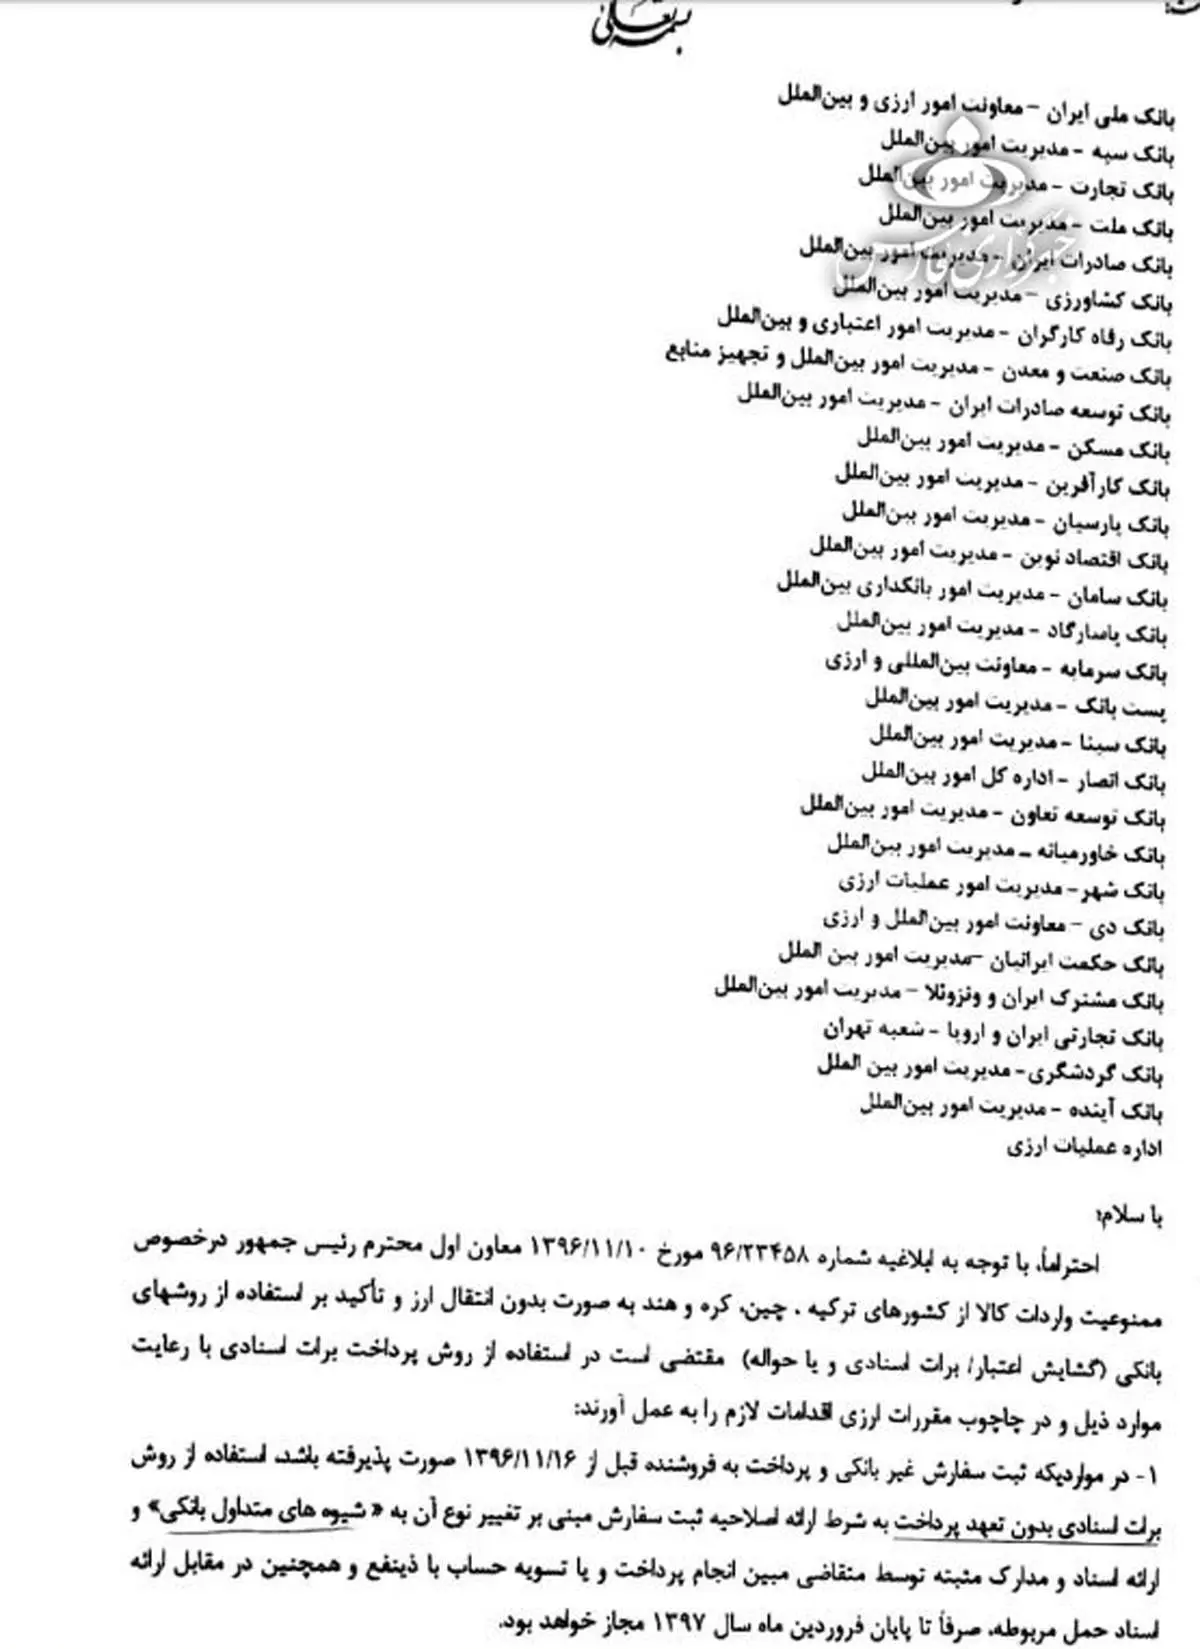 بسمه تعالی
بانک ملی ایران - معاونت امور ارزی و بین‌الملل
بانک سپه - مدیریت امور بین‌الملل
بانک تجارت - مدیریت امور بین‌الملل
بانک ملت - مدیریت امور بین‌الملل
بانک صادرات ایران - مدیریت امور بین‌الملل
بانک کشاورزی - مدیریت امور بین‌الملل
بانک رفاه کارگران - مدیریت امور اعتباری و بین‌الملل
بانک صنعت و معدن - مدیریت امور بین‌الملل و تجهیز منابع
بانک توسعه صادرات ایران - مدیریت امور بین‌الملل
بانک مسکن - مدیریت امور بین‌الملل
بانک کارآفرین - مدیریت امور بین‌الملل
بانک پارسیان - مدیریت امور بین‌الملل
بانک اقتصاد نوین - مدیریت امور بین‌الملل
بانک سامان - مدیریت امور بانکداری بین‌الملل
بانک پاسارگاد - مدیریت امور بین‌الملل
بانک سرمایه - معاونت بین‌المللی و ارزی
پست بانک - مدیریت امور بین‌الملل
بانک سینا - مدیریت امور بین‌الملل
بانک انصار - اداره کل امور بین‌الملل
بانک توسعه تعاون - مدیریت امور بین‌الملل
بانک خاورمیانه ـ مدیریت امور بین‌الملل
بانک شهر- مدیریت امور عملیات ارزی
بانک دی - معاونت امور بین‌الملل و ارزی
بانک حکمت ایرانیان -مدیریت امور بین الملل
بانک مشترک ایران و ونزوئلا - مدیریت امور بین‌الملل
بانک تجارتی ایران و اروپا - شعبه تهران
بانک گردشگری- مدیریت امور بین الملل
بانک آینده - مدیریت امور بین‌الملل
اداره عملیات ارزی
با سلام؛
احتراماً، با توجه به ابلاغیه شماره ۹۶/۲۳۴۵۸ مورخ ۱۳۹۶/۱۱/۱۰ معاون اول محترم رئیس جمهور درخصوص
ممنوعیت واردات کالا از کشورهای ترکیه ، چین، کره و هند به صورت بدون انتقال ارز و تأکید بر استفاده از روشهای
بانکی (گشایش اعتبار/ برات اسنادی و یا حواله) مقتضی است در استفاده از روش پرداخت برات اسنادی با رعایت
موارد ذیل و در چاچوب مقررات ارزی اقدامات لازم را به عمل آورند:
۱- در مواردیکه ثبت سفارش غیر بانکی و پرداخت به فروشنده قبل از ۱۳۹۶/۱۱/۱۶ صورت پذیرفته باشد، استفاده از روش
برات اسنادی بدون تعهد پرداخت به شرط ارائه اصلاحیه ثبت سفارش مبنی بر تغییر نوع آن به « شیوه های متداول بانکی» و
ارائه اسناد و مدارک مثبته توسط متقاضی مبین انجام پرداخت و یا تسویه حساب با ذینفع و همچنین در مقابل ارائه
اسناد حمل مربوطه، صرفاً تا پایان فروردین ماه سال ۱۳۹۷ مجاز خواهد بود.
خبرگزاری فارس